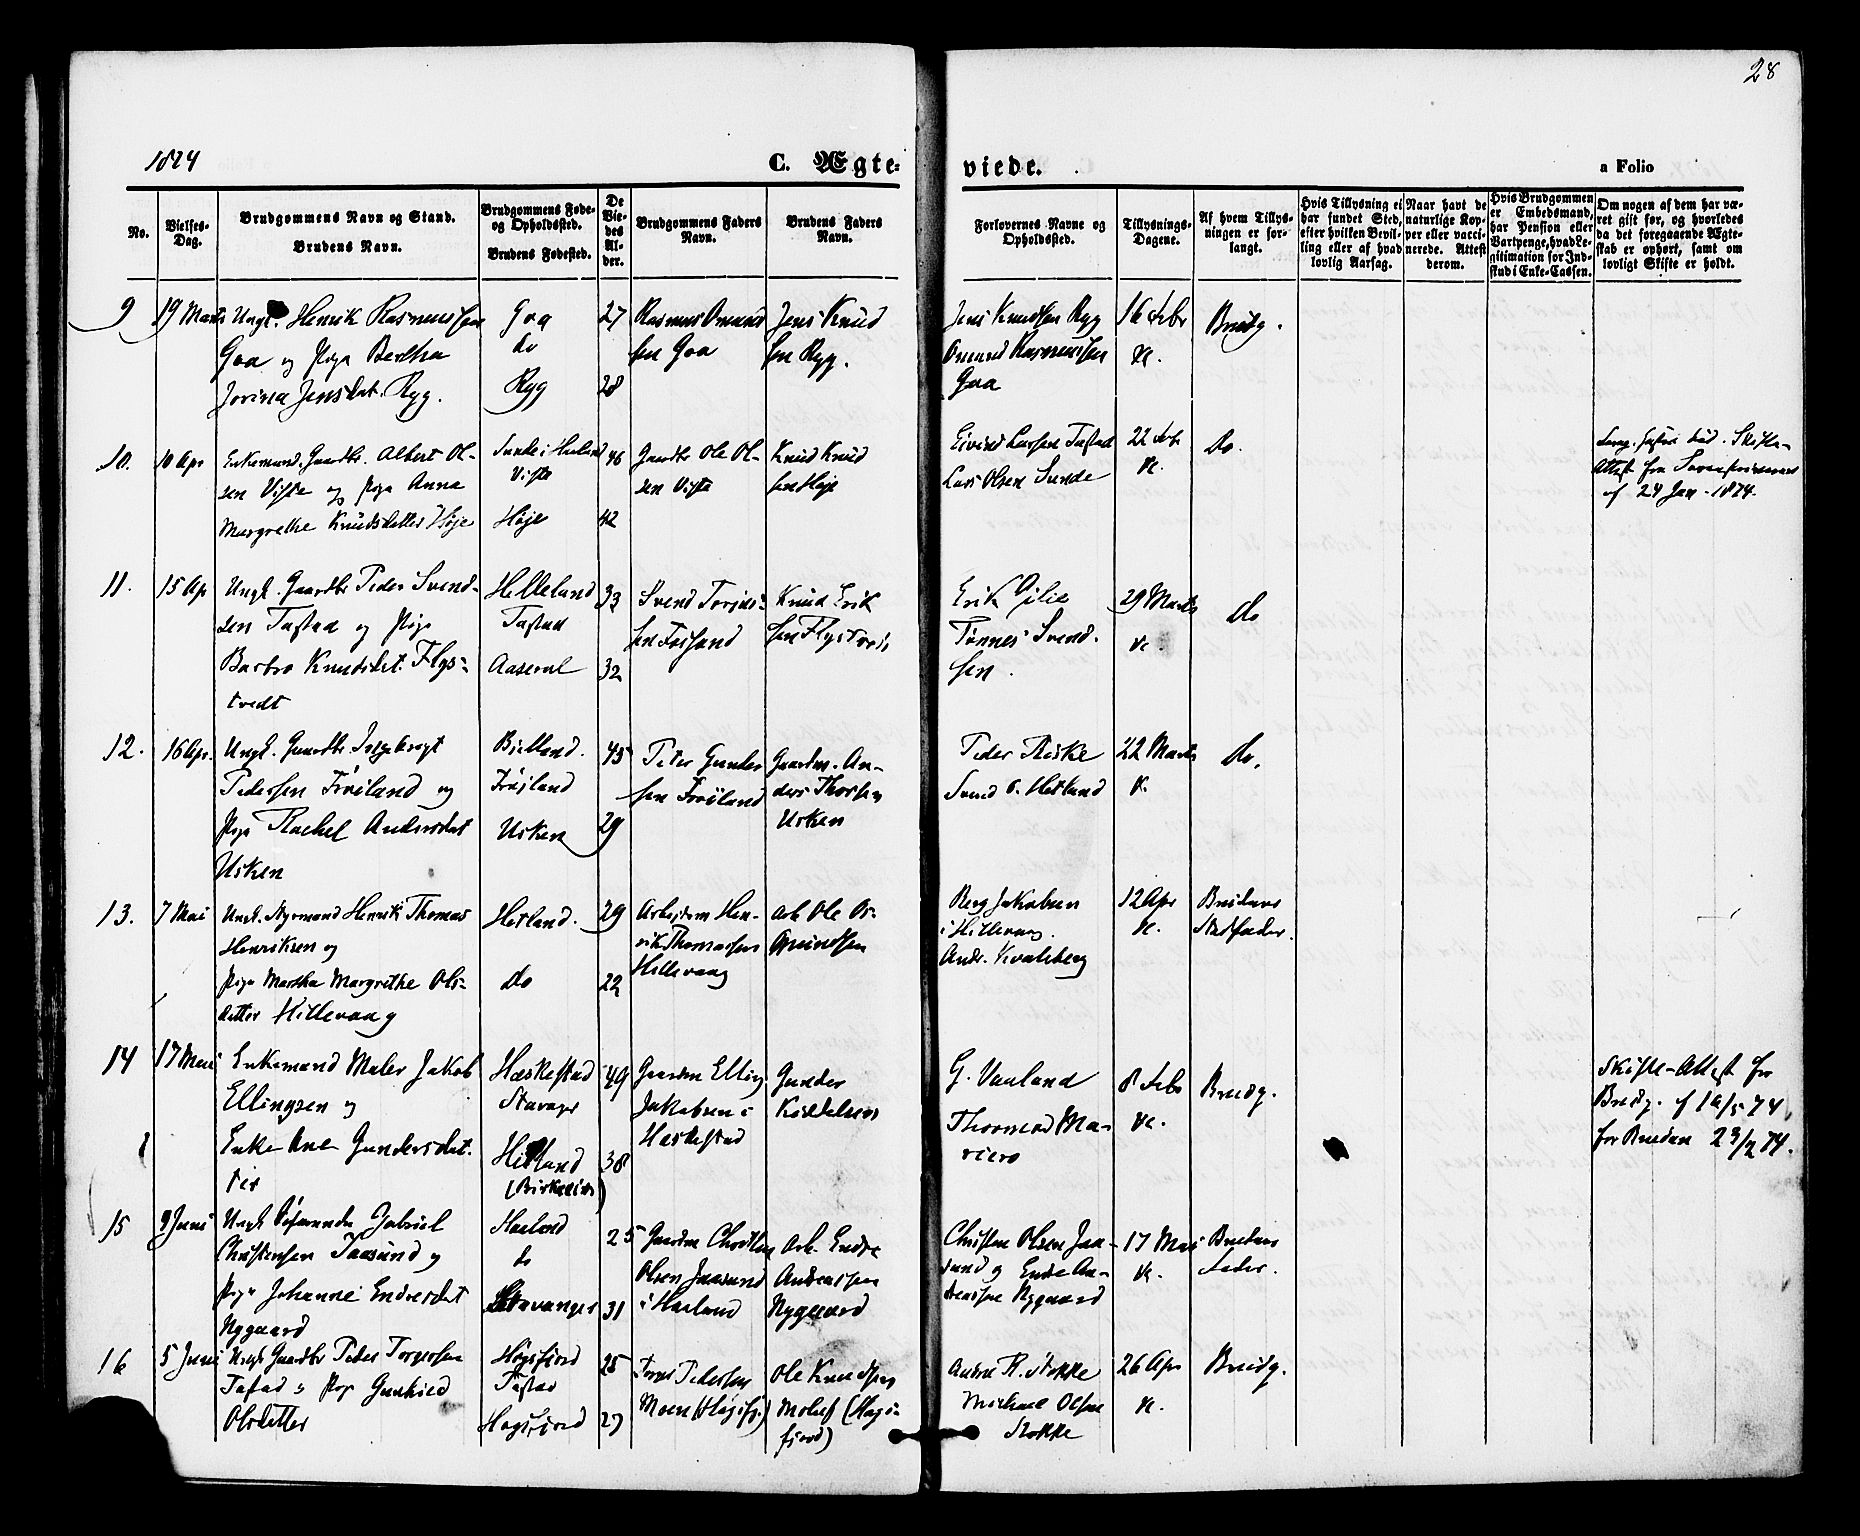 28
1874
C. Ægte-
viede.
a Folio
No.
Vielses-
Dag.
Brudgommens Navn og Stand.
Brudens Navn.
Brudgommens Føde-
og Opholdssted.
Brudens Fødested.
De
Vie-
des
Al-
der.
Brudgommens Faders
Navn.
Brudens Faders
Navn.
Forlovernes Navne og
Opholdssted.
Tillysnings-
Dagene.
Af hvem Tillys-
ningen er for-
langt.
Hvis Tillysning ei
har fundet Sted,
efter hvilken Bevil-
ling eller af hvad
lovlig Aarsag.
Naar havt de
naturlige Kop-
per eller vacci-
nerede. Attest
derom.
Hvis Brudgommen
er Embedsmand,
har Pension eller
Vartpenge, hvad Le-
gitimation for Ind-
skud i Enke-Cassen.
Om nogen af dem har væ-
ret gift før, og hvorledes
da det foregaaende Ægte-
skab er ophørt, samt om
lovligt Skifte er holdt.
9
19 Marts
Ungk. Henrik Rasmussen
Goa og Pige Bertha
Jorina Jensdat. Ryg.
Goa
do
Ryg
27
28
Rasmus Omund
sen Goa
Jens Knud
sen Ryg.
Jens Knudsen Ryg
Omund Rasmussen
Goa
16 Febr
&c.
Brudg.
10.
10 Apr
Enkemand, Gaardbr. Albert Ol-
sen Viste og Pige Anna
Margrethe Knudsdatter Høje
Sunde i Hetland
Viste
Høje
46
42
Gaardbr Ole Ol-
sen Viste
Knud Knud
sen Høje
Eivind Larsen Tastad
Lars Olsen Sunde
22 Feb
&c.
Do.
Skifte-
Attest fra
af 24 Jan. 1874.
11.
15 Ap
Ungk. Gaardbr Peder Svend-
sen Tastad og Pige
Barbro Knudsdat. Flys-
tvedt
Helleland
Tastad
Aaseral
33
32
Svend
sen
Knud Erik
sen Flystvedt
Erik Gilje
Tønnes Svend-
sen.
29 Marts
&c.
do
12.
16 Apr.
Ungk. Gaardbr. Ingebregt
Pedersen Frøiland og
Pige Rachel Andersdat
Usken
Bjelland.
Frøjland
Usken
45
29
Peter Gunder
sen Frøiland
Gaardm. An-
ders Thorsen
Usken
Peder Reske
Svend O. Hetland
22 Marts
&c.
do.
13.
7 Mai
Ungk. Styrmand Henrik Thomas
Henriksen og
Pige Martha Margrethe Ols-
datter Hillevaag
Hetland.
do
29
22
Arbejdsm Hen-
rik Thomassen
Hillevaag
Arb Ole As-
mundsen
Berg Jakobsen
i Hillevaag.
Andr. Kvaleberg
12 Apr
&c.
Brudens
Stedfader.
14
17 Mai
Enkemand Maler Jakob
Ellingsen og
Enke Ane Gundersdat
ter
Haskestad
Stavager
Hetland
49
38
Gaardm Elling
Jakobsen i
Haskestad
Gunder
G. Vauland
8 Febr
&c.
Brudg.
Skifte-Attest for
Brudg. af 16/5 74,
for Bruden 23/2 74.
15
Juni
Ungk. Gabriel
Christensen Jaasund og
Pige Johanne Endresdat
Nygaard
Haaland
do
Stavanger
25
31
Gaardm Christen
Olsen Jaasund
i Haaland
Arb. Endre
Andreassen
Nygaard
Christen Olsen Jaa-
sund og Endre An-
dreassen Nygaard
17 Mai
&c.
Brudens
Fader.
16
5 Juni
Ungk Gaardbr Peder Torgersen
Tastad & Pige Gunhild
Olsdatter
Høgsfjord
Tastad
Høgsfjord
25
27
Pedersen
Moen (Høgsfj.)
Ole Knudsen
(Høgs-
fjord)
Andre R. Stokke
Michael Olsen
Stokke
26 Apr
&c.
Brudg.